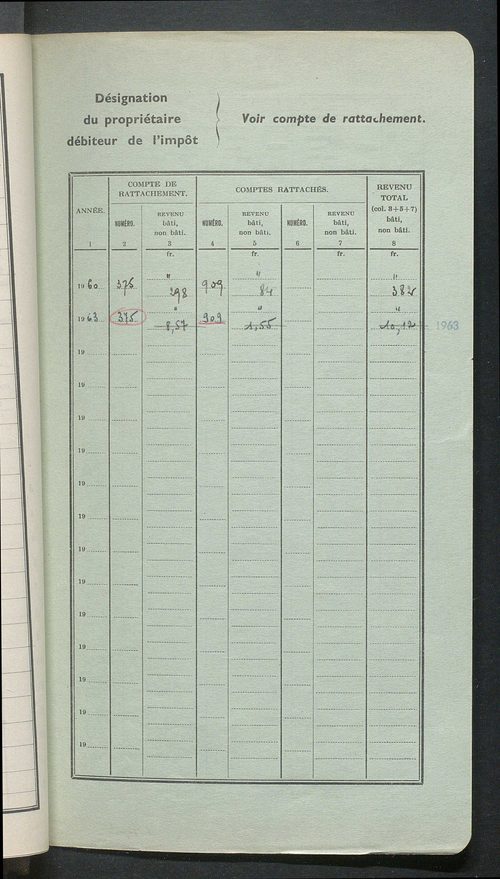 Désignation
du propriétaire
débiteur de l'impôt
Voir compte de rattachement.
ANNÉE. COMPTE DE RATTACHEMENT. COMPTES RATTACHÉS. REVENU TOTAL (col. 3+5+7) bâti, non bâti.
NUMÉRO. REVENU bâti, non bâti. NUMÉRO. REVENU bâti, non bâti. NUMÉRO. REVENU bâti, non bâti.
1 2 3 4 5 6 7 8
fr. fr. fr. fr.
" " "
1960 375 298 909 84 382
" " "
1963 375 8,57 909 1,55 10,12 1963
19
19
19
19
19
19
19
19
19
19
19
19
19